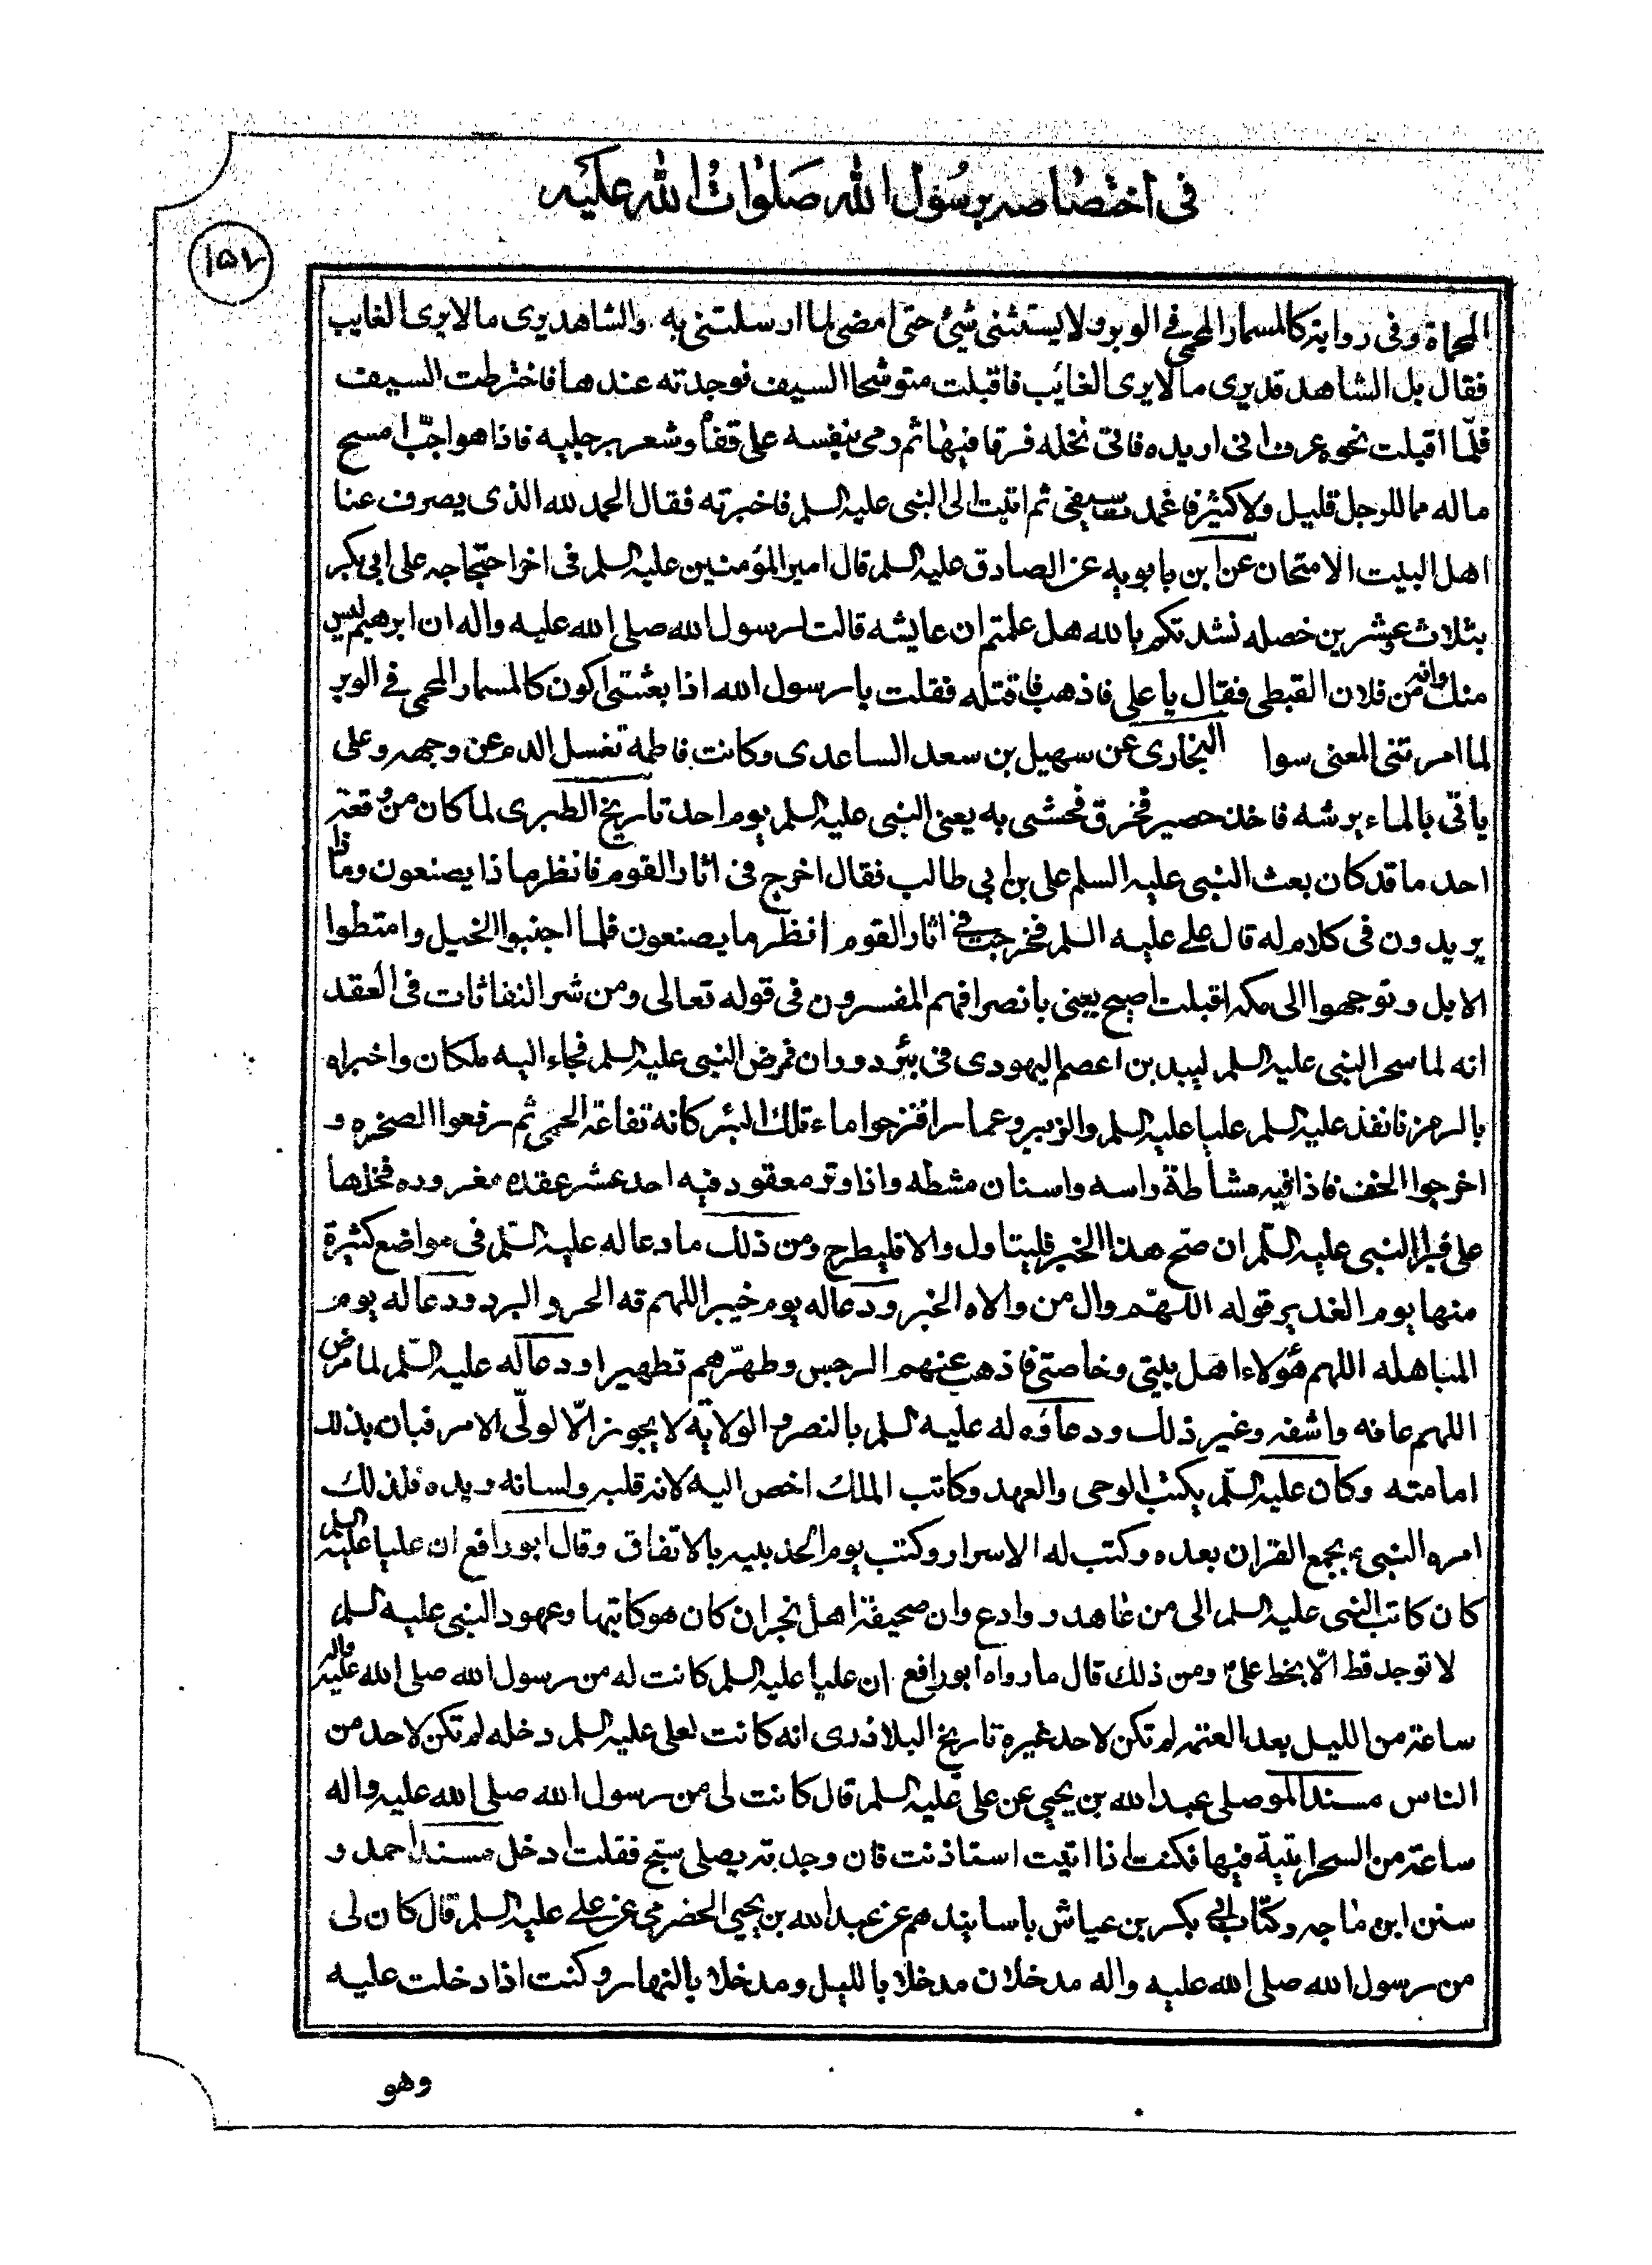 فى اختصاصه برسول الله صلوات الله عليه
١٥٧
المحماة وفى رواية كالمسمار المحمى فى الوبر ولا يستثنى شئ حتى امضى لما ارسلتنى به والشاهد يرى مالا يرى الغايب
فقال بل الشاهد قد يرى مالا يرى الغائب فاقبلت متوشحا السيف فوجدته عندها فاخترطت السيف
فلمّا اقبلت نحوه عرف انى اريده فاتى نخله فرقا فيها ثم رمى بنفسه على قفاه وشعر برجليه فاذا هو اجبّ امسح
ماله مما للرجل قليل ولا كثير فاغمدت سيفى ثم اتيت الى النبى عليه السلم فاخبرته فقال الحمد لله الذى يصرف عنا
اهل البيت الامتحان عن ابن بابويه عن الصادق عليه السلم قال امير المؤمنين عليه السلم فى اخر احتجاجه على ابى بكر
بثلاث وعشرين خصله نشدتكم بالله هل علمتم ان عايشه قالت لرسول الله صلى الله عليه واله ان ابرهيم ليس
منك وانه من فلان القبطى فقال يا على فاذهب فاقتله فقلت يا رسول الله اذا بعثتنى اكون كالمسمار المحمى فى الوبر
لما امرتنى المعنى سوا البخارى عن سهيل بن سعد الساعدى وكانت فاطمة تغسل الدم عن وجهه وعلى
ياتى بالماء يرشه فاخذ حصير فحرق فحشى به يعنى النبى عليه السلم يوم احد تاريخ الطبرى لما كان من وقعة
احد ما قد كان بعث النبى عليه السلم على بن ابي طالب فقال اخرج فى اثار القوم فانظر ماذا يصنعون وماذا
يريدون فى كلام له قال على عليه السلم فخرجت فى اثار القوم انظر ما يصنعون فلما اجنبوا الخيل وامتطوا
الابل وتوجهوا الى مكه اقبلت اصيح يعنى بانصرافهم المفسرون فى قوله تعالى ومن شر النفاثات فى العقد
انه لما سحر النبى عليه السلم لبيد بن اعصم اليهودى فى بئر دروان فمرض النبى عليه السلم فجاء اليه ملكان واخبراه
بالرمز فانفذ عليه السلم عليا عليه السلم والزبير وعمارا فنزحوا ماء تلك البئر كانه نقاعة الحمى ثم رفعوا الصخره و
اخرجوا الخف فاذا فيه مشاطة راسه واسنان مشطه واذا وتر معقود فيه احد عشر عقده مغروده فحلها
على فبرا النبى عليه السّلم ان صح هذا الخبر فليتاول والا فليطرح ومن ذلك ما دعا له عليه السّلم فى مواضع كثيرة
منها يوم الغدير قوله اللّهمّ وال من والاه الخبر ودعا له يوم خيبر اللهم قه الحر والبرد ودعا له يوم
المباهله اللهم هؤلاء اهل بيتى وخاصتى فاذهب عنهم الرجس وطهّرهم تطهيرا ودعا له عليه السّلم لما مرض
اللهم عافه واشفه وغير ذلك ودعاؤه له عليه السلم بالنصر والولاية لا يجوز الّا لولّى الامر فبان بذلك
امامته وكان عليه السّلم يكتب الوحى والعهد وكاتب الملك اخص اليه لانه قلبه ولسانه ويده فلذلك
امره النبى ع بجمع القران بعده وكتب له الاسرار وكتب يوم الحديبيه بالاتفاق وقال ابو رافع ان عليا عليه السلم
كان كاتب النبى عليه السلم الى من عاهد ووادع وان صحيفة اهل نجران كان هو كاتبها وعهود النبى عليه السلم
لا توجد قط الّا بخط علىّ ومن ذلك قال ما رواه ابو رافع ان عليا عليه السلم كانت له من رسول الله صلى الله عليه واله
ساعة من الليل بعد العتمه لم تكن لاحد غيره تاريخ البلاذرى انه كانت لعلى عليه السلم دخله لم تكن لاحد من
الناس مسند الموصلى عبد الله بن يحيى عن على عليه السلم قال كانت لى من رسول الله صلى الله عليه واله
ساعة من السحر اتيه فيها فكنت اذا اتيت استاذنت فان وجدته يصلى سبح فقلت ادخل مسند احمد و
سنن ابن ماجه وكتاب ابى بكر بن عياش باسانيدهم عن عبد الله بن يحيى الحضرمى عن على عليه السلم قال كان لى
من رسول الله صلى الله عليه واله مدخلان مدخلا بالليل ومدخلا بالنهار وكنت اذا دخلت عليه
وهو